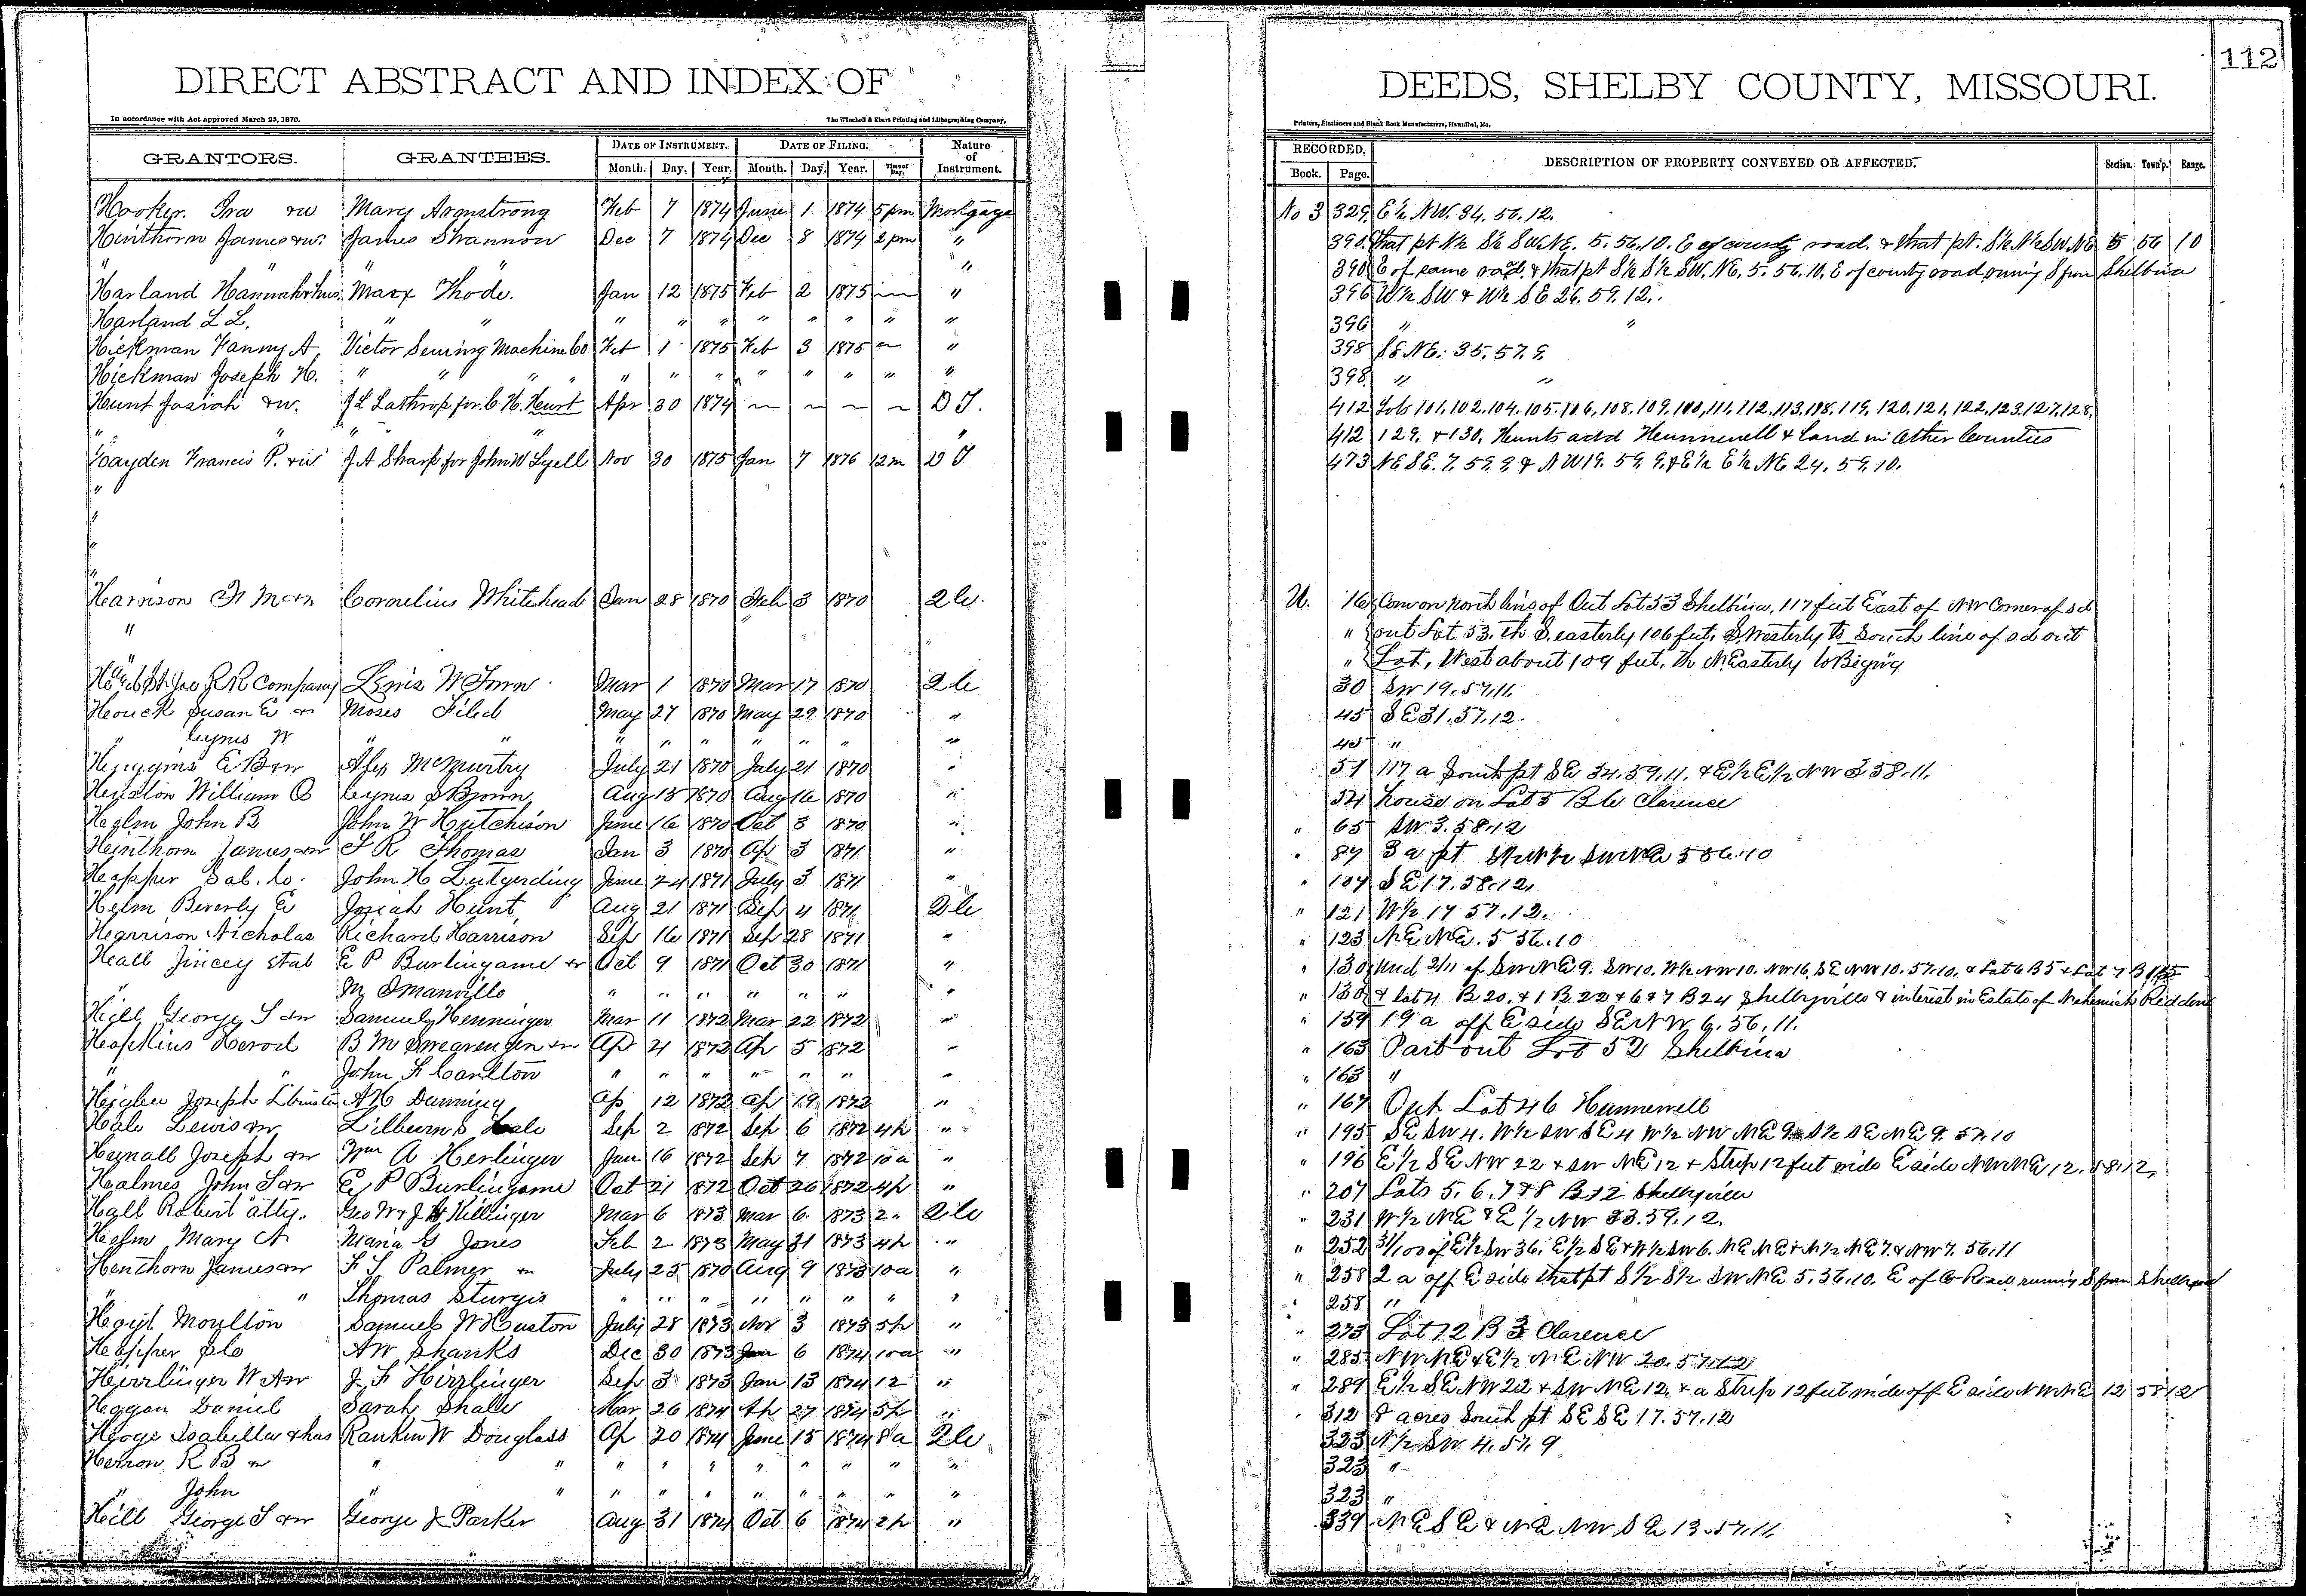 112
DIRECT ABSTRACT AND INDEX OF DEEDS, SHELBY COUNTY, MISSOURI.
In accordance with Act approved March 25, 1870. The Winchell & Ebert Printing and Lithographing Company, Printers, Stationers and Blank Book Manufacturers, Hannibal, Mo.
GRANTORS. GRANTEES. DATE OF INSTRUMENT. DATE OF FILING. Nature of Instrument. RECORDED. DESCRIPTION OF PROPERTY CONVEYED OR AFFECTED. Section. Town'p. Range.
Month. Day. Year. Month. Day. Year. Time of Day. Book. Page.
Hooker. Ira &w Mary Armstrong Feb 7 1874 June 1 1874 5 pm Mortgage No 3 329 E½ NW. 34. 56. 12.
Hinthorn James &w. James Shannon Dec 7 1874 Dec 8 1874 2 pm " 390 that pt N½ S½ SW NE. 5. 56. 10. E of county road. & that pt. S½ N½ SW. NE 5 56 10
" " 390 E of same road. & that pt S½ S½ SW. NE. 5. 56. 10. E of county road runing S from Shelbina
Harland Hannah &hus Marx Thode. Jan 12 1875 Feb 2 1875 " 396 W½ SW & W½ SE 26. 59. 12.
Harland L L. " " " " " " " " " " 396 " "
Hickman Fanny A Victor Sewing Machine Co Feb 1 1875 Feb 3 1875 " 398 SE NE. 35. 57. 9.
Hickman Joseph H. " " " " " " " " " " " 398 " "
Hunt Josiah &w. J L Lathrop for C H. Hunt Apr 30 1874 D T. 412 Lots 101. 102. 104. 105. 106. 108. 109. 110, 111. 112. 113. 118. 119. 120. 121. 122. 123. 127. 128.
" " " " " 412 129. & 130. Hunts add Hunnewell & land in other Counties
Hayden Francis P. &w J A Sharp for John W Lyell Nov 30 1875 Jan 7 1876 12 m D T 473 NE SE. 7. 59. 9. & NW 19. 59. 9. & E½ E½ NE 24. 59. 10.
"
"
"
"
Harrison Cornelius Whitehead Jan 28 1870 Feb 3 1870 U. 16 Com on north line of Out Lot 53 Shelbina, 117 feet East of NW Corner of sd
" " out Lot 53. th S. easterly 106 feet, S Westerly to South line of sd out
" " Lot, West about 109 feet, th N Easterly to Beging
RR Company Lewis Mar 1 1870 Mar 17 1870 30 SW 19. 57. 11.
Houck Susan E &w Moses May 27 1870 May 29 1870 " 45 SE 31. 57. 12.
" Cyrus W " " " " " " " " " 45 "
Huggins E B &w Alex McMurtry July 21 1870 July 21 1870 " 51 117 a South pt SE 34. 59. 11. & E½ E½ NW 3 58. 11.
William Cyrus S Brown Aug 15 1870 Aug 16 1870 " 54 house on Lot 5 B Clarence
Helm John B John W Hutchison June 16 1870 Oct 3 1870 " " 65 SW 3. 58. 12
Hinthorn James &w T R Thomas Jan 3 1870 Ap 3 1871 " " 87 3 a pt 5 56. 10
Hopper Sab. Co. John H Lutgerding June 24 1871 July 3 1871 " " 107 SE 17. 58. 12.
Helm Beverly E Josiah Hunt Aug 21 1871 Sep 4 1871 " 121 W½ 17 57. 12.
Harrison Nicholas Richard Harrison Sep 16 1871 Sep 28 1871 " " 123 NE NE. 5 56. 10
Hall Jincey et al E P Burlingame &w Oct 9 1871 Oct 30 1871 " " 130 und 2/11 of SW NE 9. SW 10. W½ NW 10. NW 16. SE NW 10. 57. 10. & Lot 6 B 5 & Lot 7 B
" M Smanville " " " " " " " " 130 & lot 4 B 20. & 1 B. 22 & 6 & 7 B 24 Shelbyville & interest in Estate of Nehemiah Redding
Hill George S &w Samuel Henninger Mar 11 1872 Mar 22 1872 " " 159 19 a off E side SE NW 6. 56. 11.
Hopkins Herod B M Swearengen &w Ap 4 1872 Ap 5 1872 " " 163 Part out Lot 52 Shelbina
" " John F Carlton " " " " " " " " 163 "
Joseph L A H Dunning Ap 12 1872 Ap 19 1872 " " 167 Out Lot 46 Hunnewell
Hale Lewis &w Lilburn S Hale Sep 2 1872 Sep 6 1872 4 p " " 195 SE SW 4. W½ SW SE 4 W½ NW NE 9. S½ SE NE 9. 57. 10
Joseph &w Wm A Herlinger Jan 16 1872 Sep 7 1872 10 a " " 196 E½ SE NW 22 & SW NE 12 & Strip 12 feet wide E side NW NE 12. 58. 12,
Holmes John S &w E P Burlingame Oct 21 1872 Oct 26 1872 4 p " " 207 Lots 5. 6. 7 & 8 B 12 Shelbyville
Hall Robert atty. Geo W & J W Killinger Mar 6 1873 Mar 6. 1873 2 " 231 W½ NE & E½ NW 33. 59. 12.
Helm Mary A Maria G Jones Feb 2 1873 May 31 1873 4 p " " 252 31/100 of E½ SW 36. E½ SE & W½ SW 6. NE NE & N½ NE 7. & NW 7. 56. 11
Henthorn James &w F S Palmer &w July 23 1870 Aug 9 1873 10 a " " 258 2 a off E side that pt S½ S½ SW NE 5. 56. 10. E of Co Road runing S from Shelbyville
" " Thomas Sturgis " " " " " " " " " 258 "
Hoyt Moulton Samuel W Huston July 28 1873 Nov 3 1873 5 p " " 273 Lot 12 B 3 Clarence
Hopper A W Shanks Dec 30 1873 Jan 6 1874 10 a " " 285 NW NE & E½ NE NW 20. 57. 12
Hirrlinger W A &w J F Hirrlinger Sep 3 1873 Jan 13 1874 12 " " 289 E½ SE NW 22 & SW NE 12. & a Strip 12 feet wide off E side NW NE 12 58 12
Hogan Daniel Sarah Shale Mar 26 1874 Ap 27 1874 5 p " " 312 8 acres South pt SE SE 17. 57. 12
Hoge Isabella & hus Rankin W Douglass Ap 20 1874 June 15 1874 8 a 323 N½ SW. 4. 57. 9
Herron R B &w " " " " " " " " " " 323 "
" John " " " " " " " " " " 323 "
Hill George S &w George J Parker Aug 31 1874 Oct 6 1874 2 p " 339 NE SE & NE NW SE 13. 57. 11.